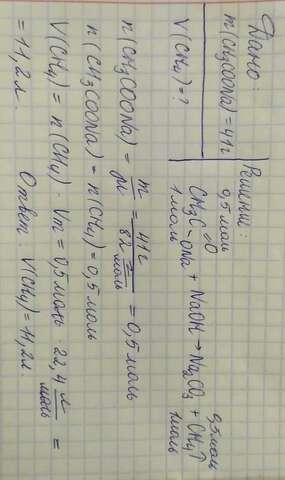 Дано:
n(CH3COONa) = 41 г
V(CH4) = ?
Решение:
0,5 моль 0,5 моль
CH3C=O-ONa + NaOH → Na2CO3 + CH4↑
1 моль 1 моль
n(CH3COONa) = m/M = 41 г/82 г/моль = 0,5 моль
n(CH3COONa) = n(CH4) = 0,5 моль
V(CH4) = n(CH4) · Vm = 0,5 моль 22,4 л/моль =
= 11,2 л. Ответ: V(CH4) = 11,2 л.